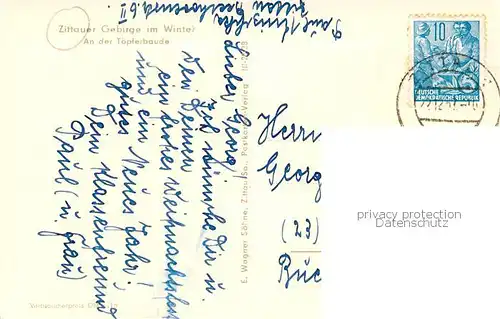 Zittauer Gebirge im Winter
An der Töpferbaude
Lieber Georg!
Ich wünsche Dir u.
Den Deinen
ein frohes Weihnachtsfest
und ein Neues Jahr!
gutes
Dein Klassenfreund
Paul (u. Frau)
E. Wagner Söhne, Zittau/Sa., Postkarten-Verlag
Herrn
Georg
(23)
Buc
10
DEUTSCHE
DEMOKRATISCHE REPUBLIK
ZITTAU
privacy protection
Datenschutz